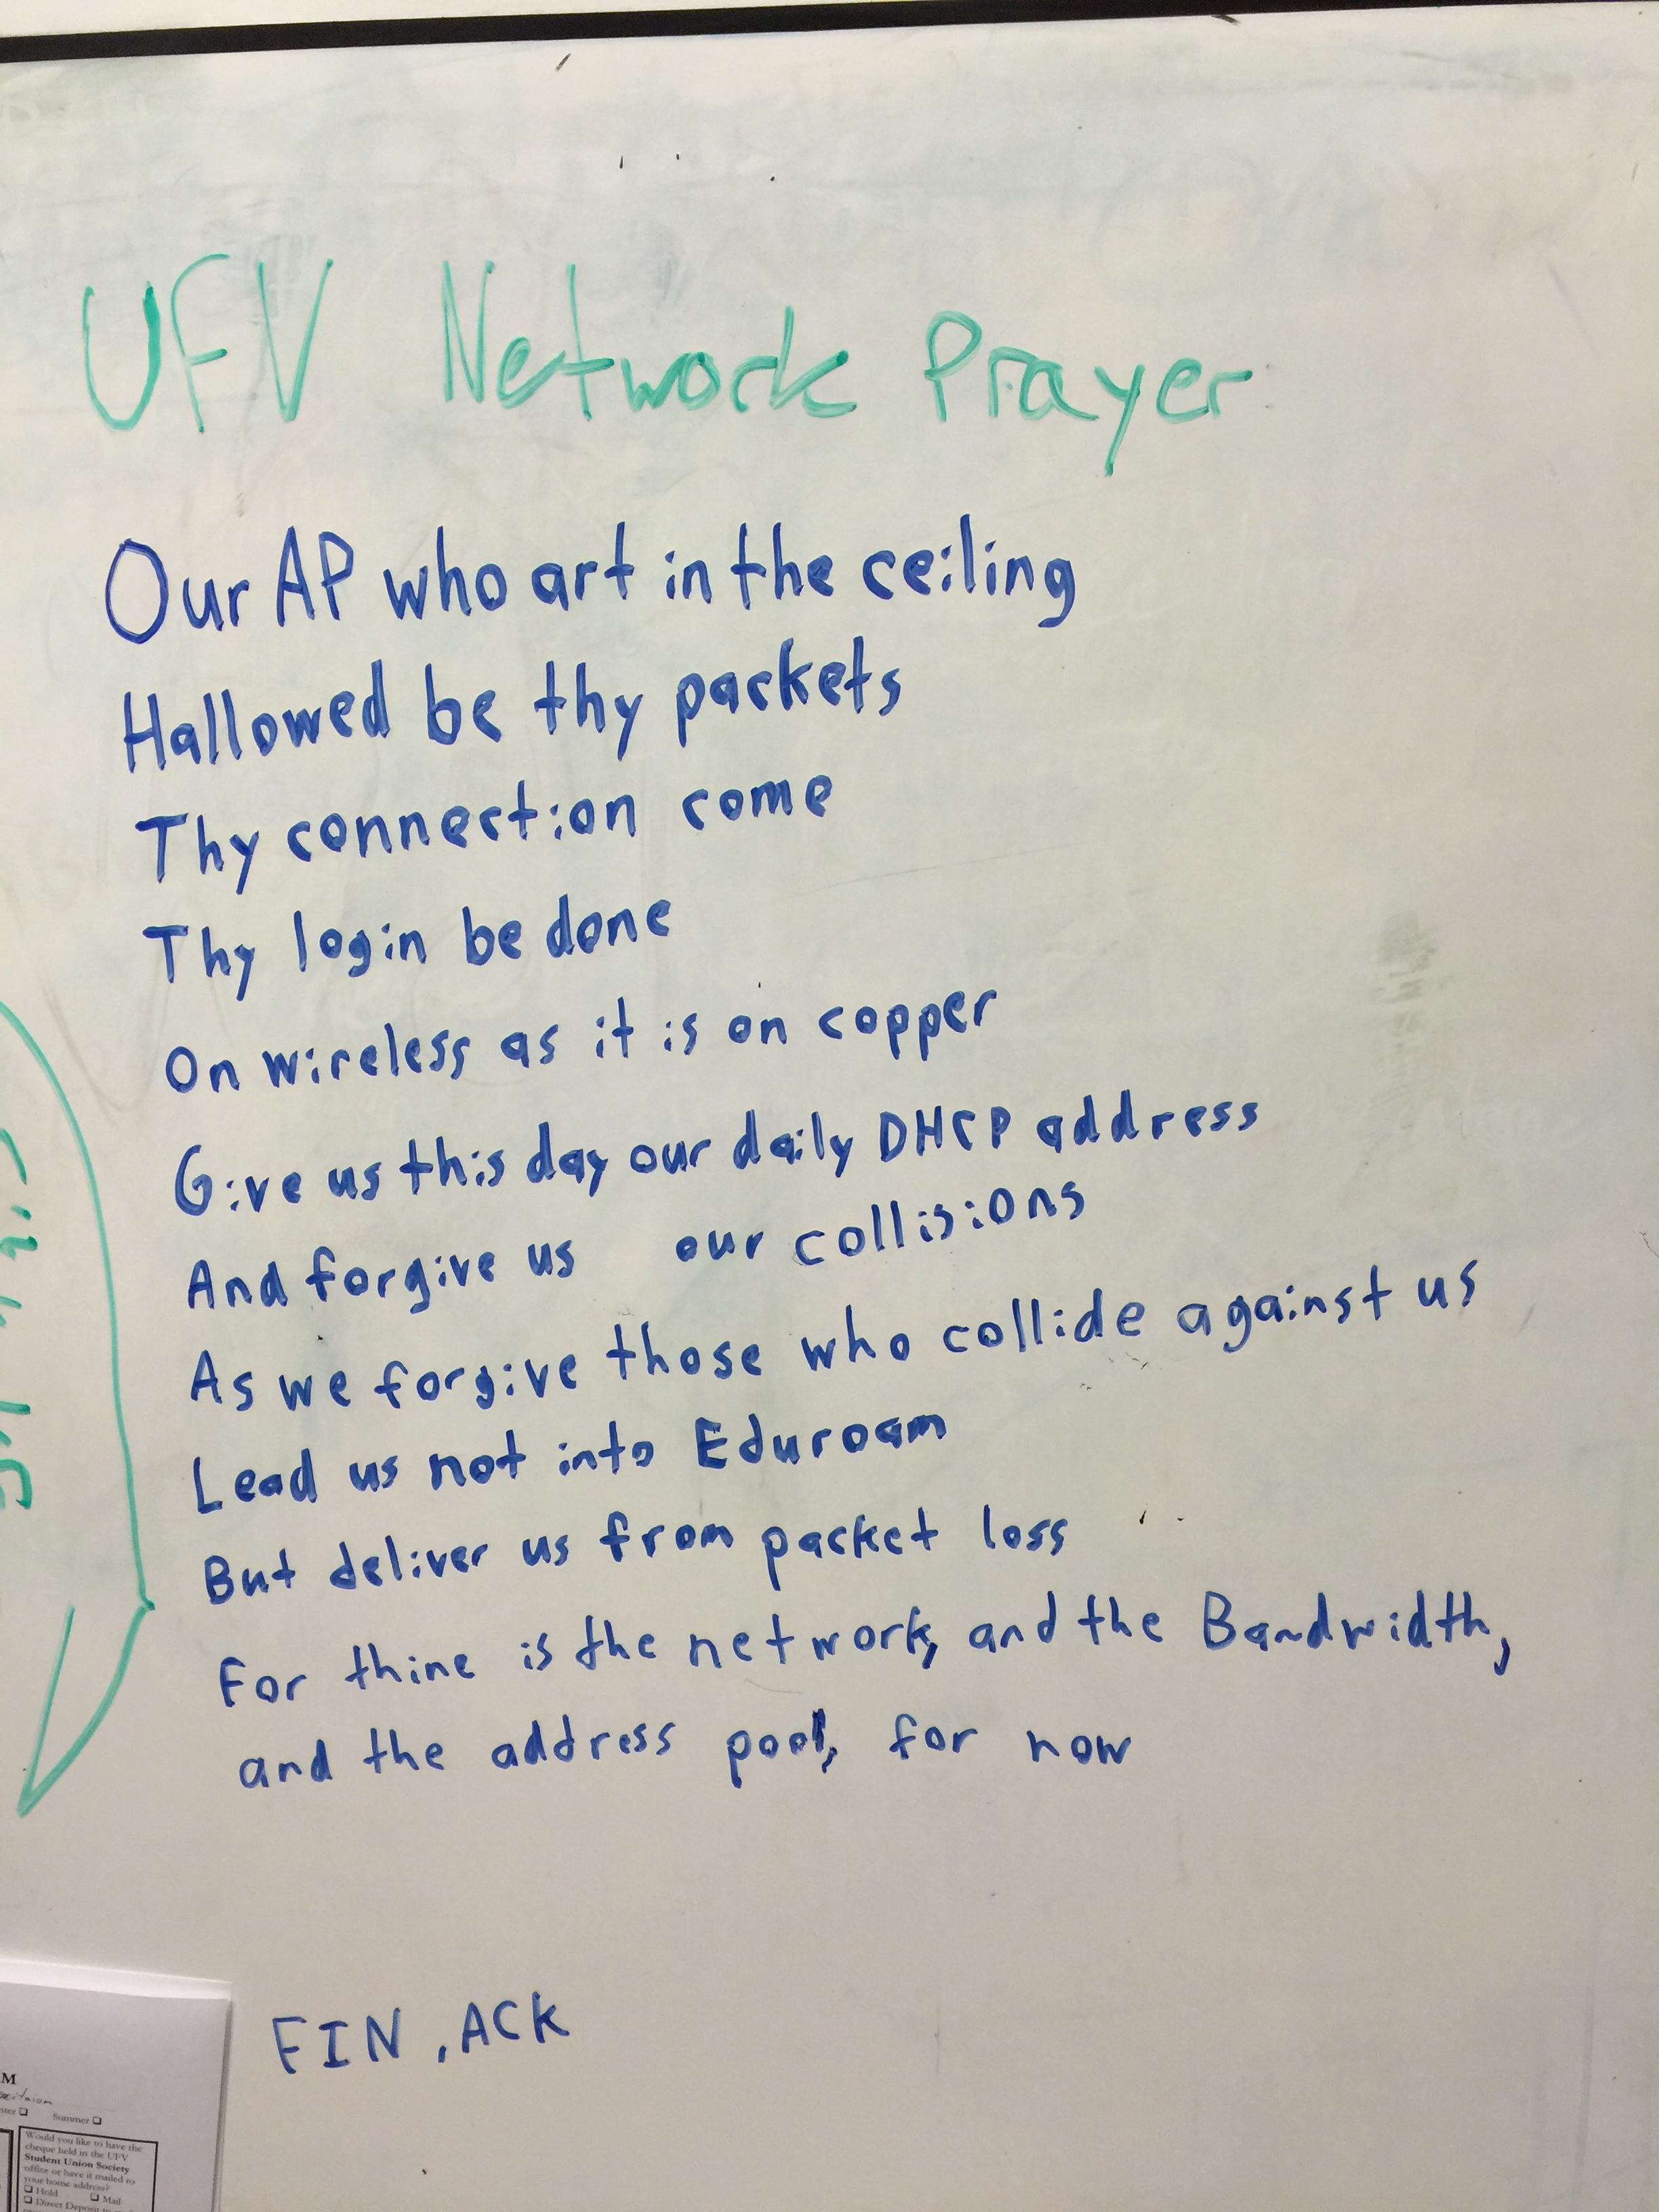 UFV Network Prayer
Our AP who art in the ceiling
Hallowed be thy packets
Thy connection come
Thy login be done
On wireless as it is on copper
Give us this day our daily DHCP address
And forgive us our collisions
As we forgive those who collide against us
Lead us not into Eduroam
But deliver us from packet loss
For thine is the network, and the Bandwidth,
and the address pool, for now
FIN, ACK
M
Summer
Would you like to have the
cheque held in the UFV
Student Union Society
office or have it mailed to
your home address?
Hold Mail
Direct Deposit